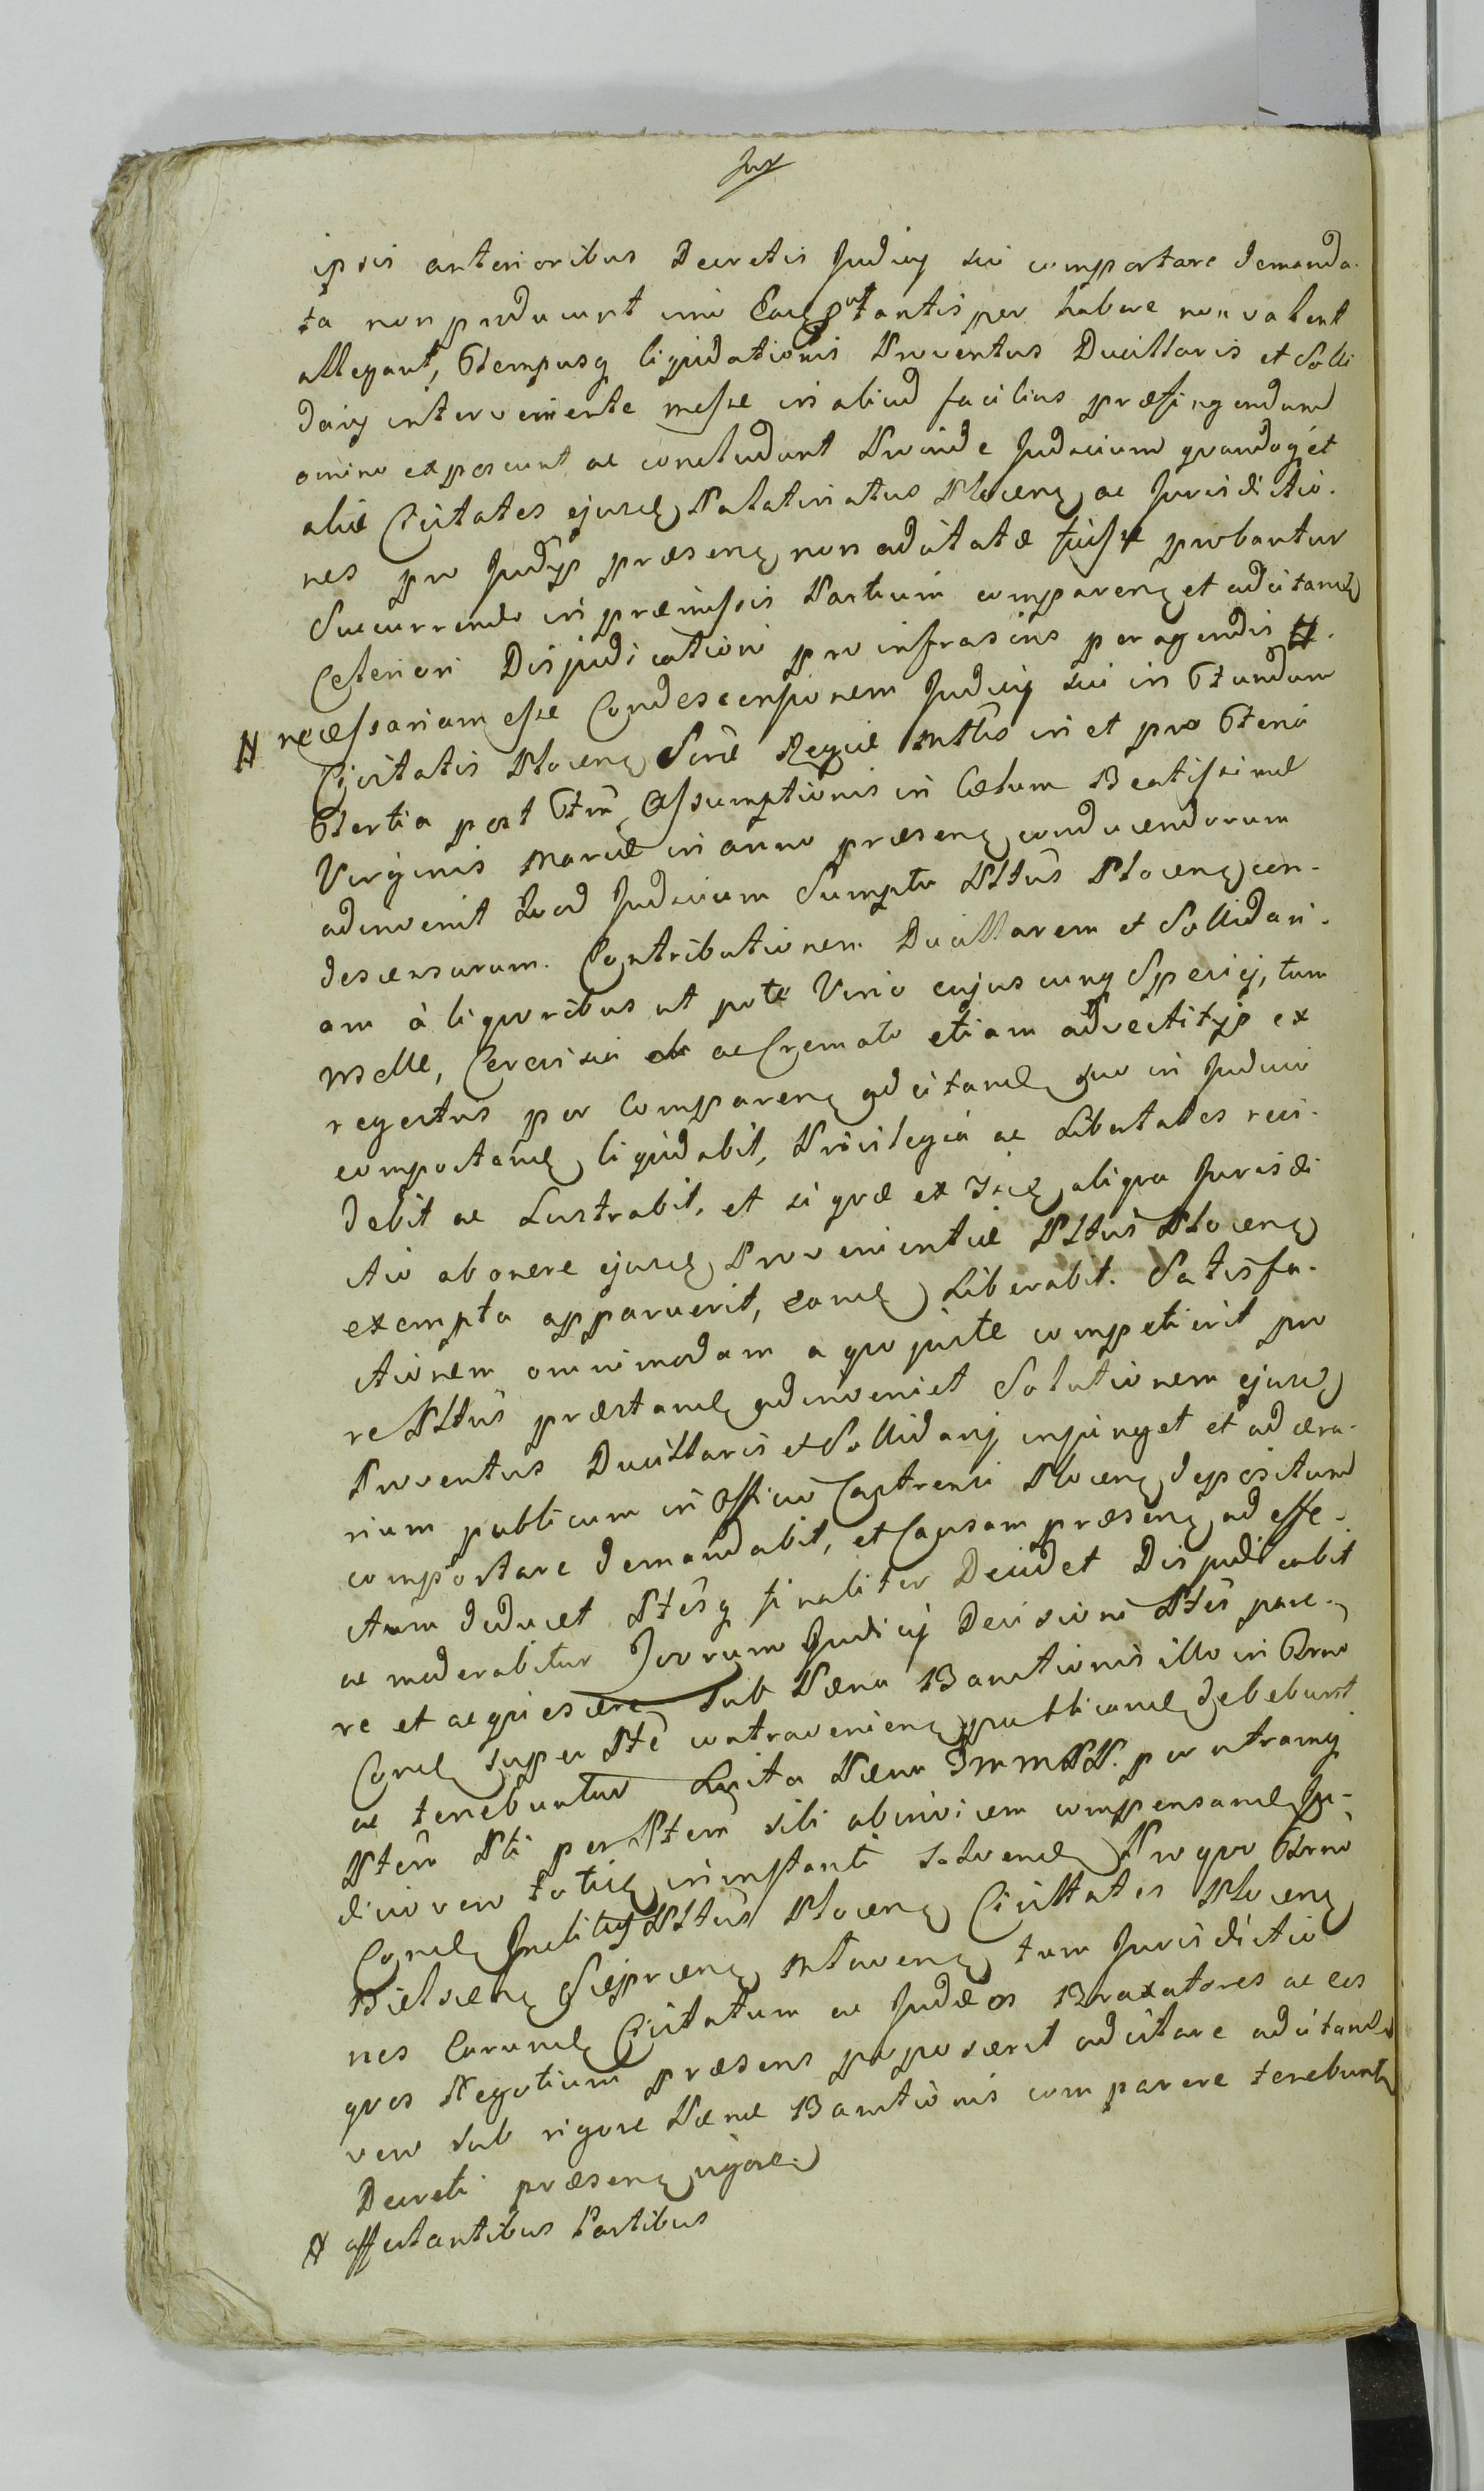 ipsis anterioribus Decretis Judicij sui comportare demanda-
ta non producunt imo Eaq tantisper habere non valent
allegant, Tempusq liquidationis Proventus Ducillaris et Solli
darij interveniente messe in aliud facilius præfingendum
omnino exposcunt ac concludunt Proinde Judicium quandoq et
aliæ Civitates ejusd Palatinatus Plocen ac Jurisdictio-
nes pro Judijs præsen non adcitatæ fuisse probantur
Succurrendo in præmissis Partium comparen et adcitand
Celeriori Disjudicationi pro infrascins peragendis #.
# necessariam esse Condescensionem Judicij sui in Fundum
Civitatis Plocen Sacræ Regiæ Mttis in et pro Feria
Tertia post Ftm Assumptionis in Cælum Beatissimæ
Virginis Mariæ in anno præsen conducendorum
adinvenit Quod Judicium Sumptu Pltus Plocen con-
descensurum. Contributionem Ducillarem et Sollidari-
am à liquoribus ut pote Vino cujuscunq Speciej, tum
Melle, Cerevisia ac Cremato etiam advectitijs ex
regestris per Comparen adcitand suo in Judicio
comportand liquidabit, Privilegia ac Libertates revi-
debit ac Lustrabit, et si quæ ex Iisd aliqua Jurisdi
ctio ab onere ejusd Provenientiæ Pltus Plocen
exempta apparuerit, eand Liberabit. Satisfa-
ctionem omnimodam a quo juste competierit pro
re Pltus præstand adinveniet Solutionem ejusd
Proventus Ducillaris et Sollidarij injunget et ad æra-
rium publicum in Officio Castrensi Plocen depositum
comportare demandabit, et Causam præsen ad effe-
ctum deducet Ptesq finaliter Decidet Disjudicabit
ac moderabitur Quorum Judicij Decisioni Ptes pare-
re et acquiescere sub Pæna Bannitionis illo in Trno
Cond super Pte contravenien publicand debebunt
ac tenebuntur Luita Pæna 3mm PP. per utramq
Ptem Pti per Ptem sibi abinvicem compensand Ju-
dicio vero toties in instanti solvend Pro quo Trno
Cond Pltus Plocen Civittates Plocen
Bielscen Sieprcen Mlawen tum Jurisdictio
nes Earund Civitatum ac Judæos Braxatores ac eos
quos Negotium præsens poposcerit adcitare adcitand
vero sub rigore Pænæ Bannitionis comparere tenebunt
Decreti præsen vigore
# affectantibus Partibus